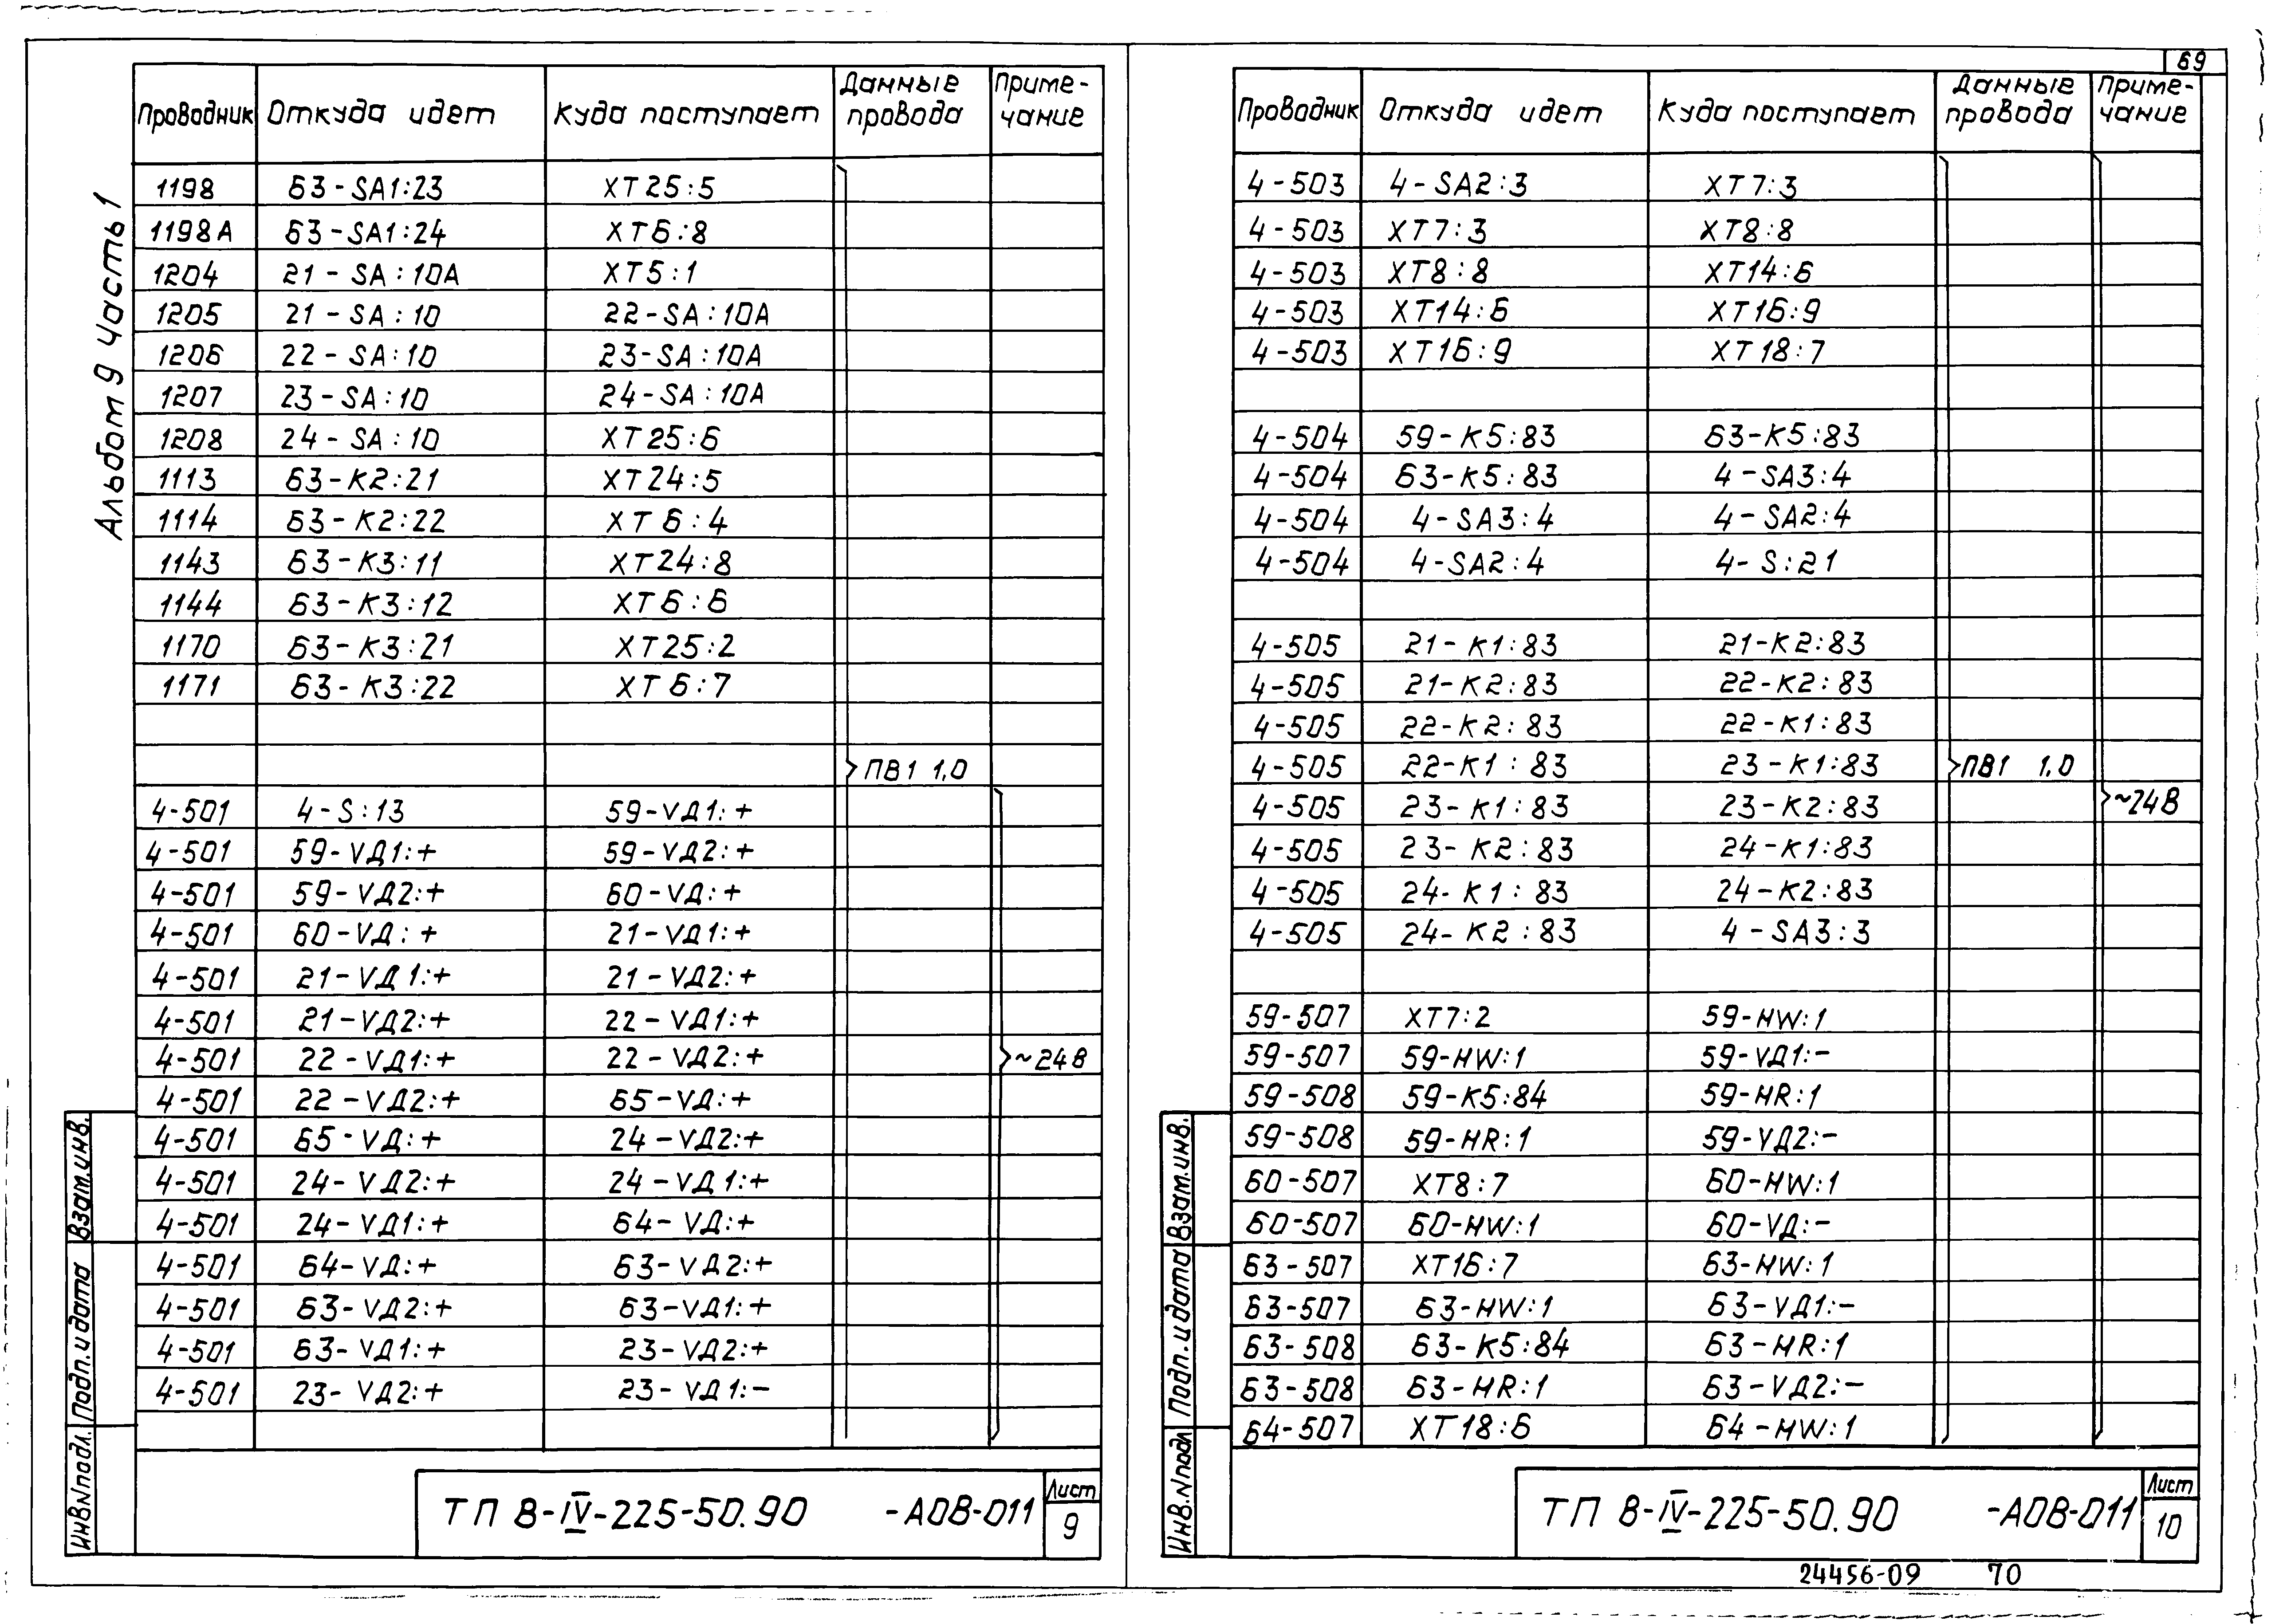 Альбом 9 Часть 1
Проводник Откуда идет Куда поступает Данные провода Приме-чание
1198 63-SA1:23 XT25:5
1198А 63-SA1:24 XT6:8
1204 21-SA:10А XT5:1
1205 21-SA:10 22-SA:10А
1206 22-SA:10 23-SA:10А
1207 23-SA:10 24-SA:10А
1208 24-SA:10 XT25:6
1113 63-К2:21 XT24:5
1114 63-К2:22 XT6:4
1143 63-К3:11 XT24:8
1144 63-К3:12 XT6:6
1170 63-К3:21 XT25:2
1171 63-К3:22 XT6:7
ПВ1 1,0
4-501 4-S:13 59-VД1:+
4-501 59-VД1:+ 59-VД2:+
4-501 59-VД2:+ 60-VД:+
4-501 60-VД:+ 21-VД1:+
4-501 21-VД1:+ 21-VД2:+
4-501 21-VД2:+ 22-VД1:+
4-501 22-VД1:+ 22-VД2:+ ~24В
4-501 22-VД2:+ 65-VД:+
4-501 65-VД:+ 24-VД2:+
4-501 24-VД2:+ 24-VД1:+
4-501 24-VД1:+ 64-VД:+
4-501 64-VД:+ 63-VД2:+
4-501 63-VД2:+ 63-VД1:+
4-501 63-VД1:+ 23-VД2:+
4-501 23-VД2:+ 23-VД1:-
Взам.инв.
Подп. и дата
Инв.N подл.
ТП 8-IV-225-50.90 -АОВ-011
Лист
9
69
Проводник Откуда идет Куда поступает Данные провода Приме-чание
4-503 4-SA2:3 XT7:3
4-503 XT7:3 XT8:8
4-503 XT8:8 XT14:6
4-503 XT14:6 XT16:9
4-503 XT16:9 XT18:7
4-504 59-К5:83 63-К5:83
4-504 63-К5:83 4-SA3:4
4-504 4-SA3:4 4-SA2:4
4-504 4-SA2:4 4-S:21
4-505 21-К1:83 21-К2:83
4-505 21-К2:83 22-К2:83
4-505 22-К2:83 22-К1:83
4-505 22-К1:83 23-К1:83 ПВ1 1,0
4-505 23-К1:83 23-К2:83 ~24В
4-505 23-К2:83 24-К1:83
4-505 24-К1:83 24-К2:83
4-505 24-К2:83 4-SA3:3
59-507 XT7:2 59-HW:1
59-507 59-HW:1 59-VД1:-
59-508 59-К5:84 59-HR:1
59-508 59-HR:1 59-VД2:-
60-507 XT8:7 60-HW:1
60-507 60-HW:1 60-VД:-
63-507 XT16:7 63-HW:1
63-507 63-HW:1 63-VД1:-
63-508 63-К5:84 63-HR:1
63-508 63-HR:1 63-VД2:-
64-507 XT18:6 64-HW:1
Взам.инв.
Подп. и дата
Инв.N подл
ТП 8-IV-225-50.90 -АОВ-011
Лист
10
24456-09 70